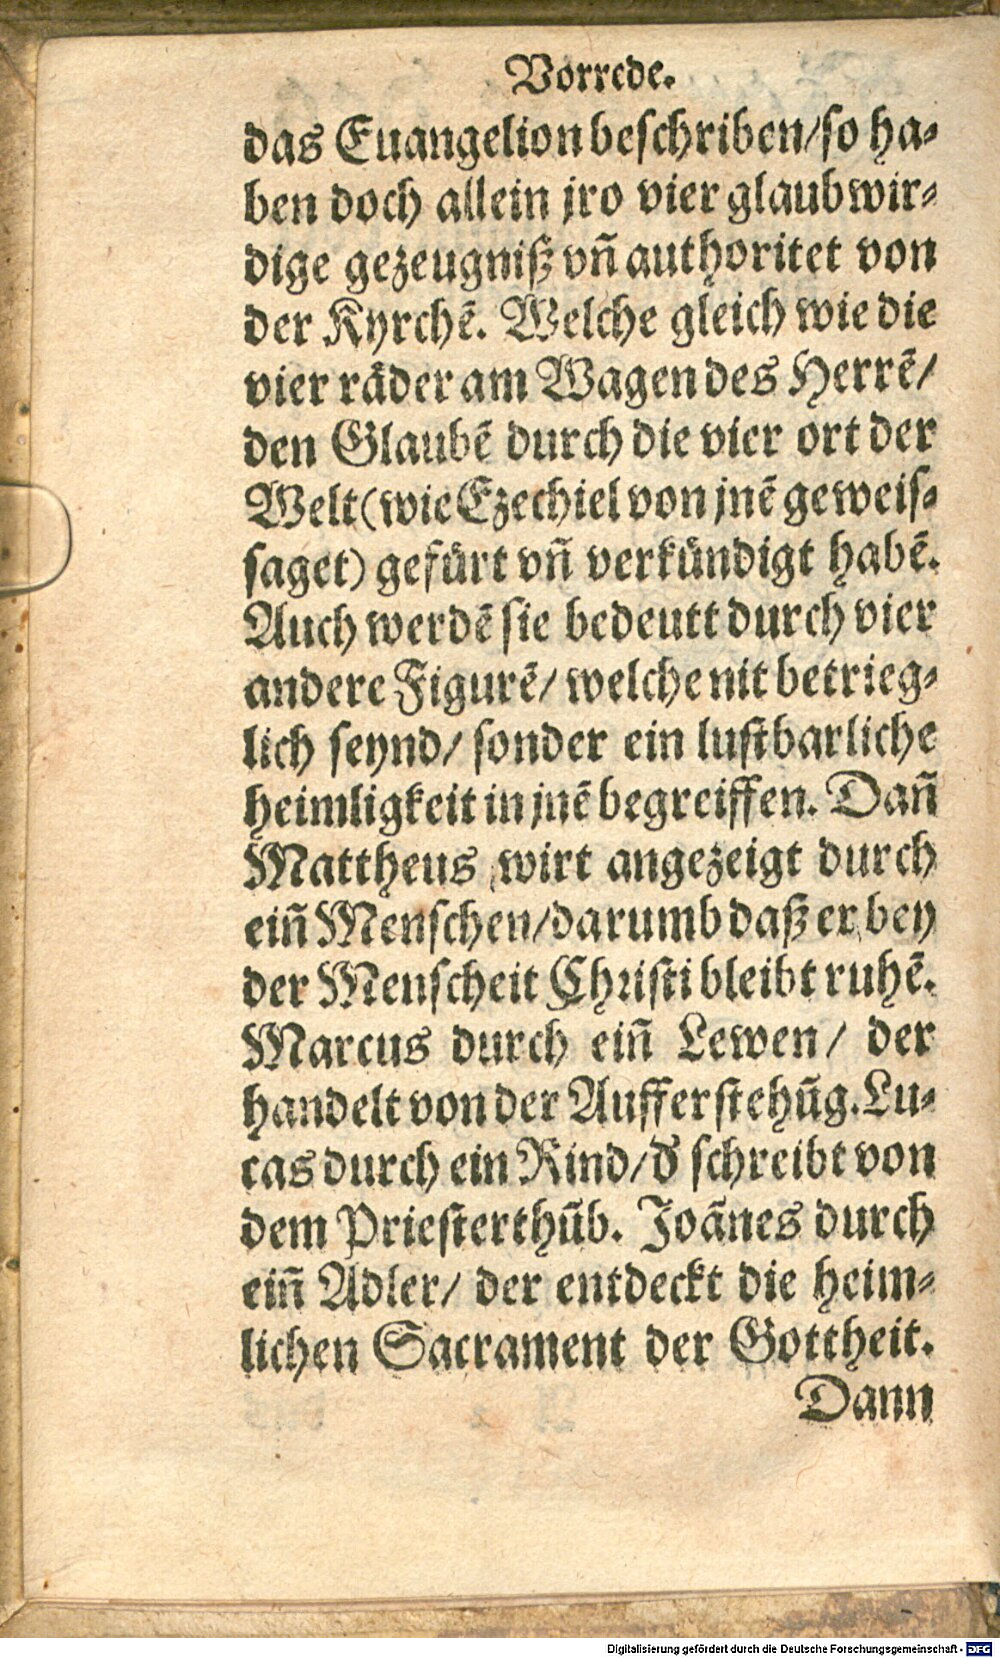 Vorrede.
das Euangelion beschriben/so ha-
ben doch allein jro vier glaubwir-
dige gezeugniß vñ authoritet von
der Kyrchē. Welche gleich wie die
vier räder am Wagen des Herrē/
den Glaubē durch die vier ort der
Welt(wie Ezechiel von jnē geweis-
saget) gefürt vñ verkündigt habē.
Auch werdē sie bedeutt durch vier
andere Figurē/ welche nit betrieg-
lich seynd/ sonder ein lustbarliche
heimligkeit in jnē begreiffen. Dañ
Mattheus wirt angezeigt durch
eiñ Menschen/darumb daß er bey
der Menscheit Christi bleibt ruhē.
Marcus durch eiñ Lewen/ der
handelt von der Aufferstehūg.Lu-
cas durch ein Rind/d' schreibt von
dem Priesterthūb. Joānes durch
eiñ Adler/ der entdeckt die heim-
lichen Sacrament der Gottheit.
Dann
Digitalisierung gefördert durch die Deutsche Forschungsgemeinschaft - DFG